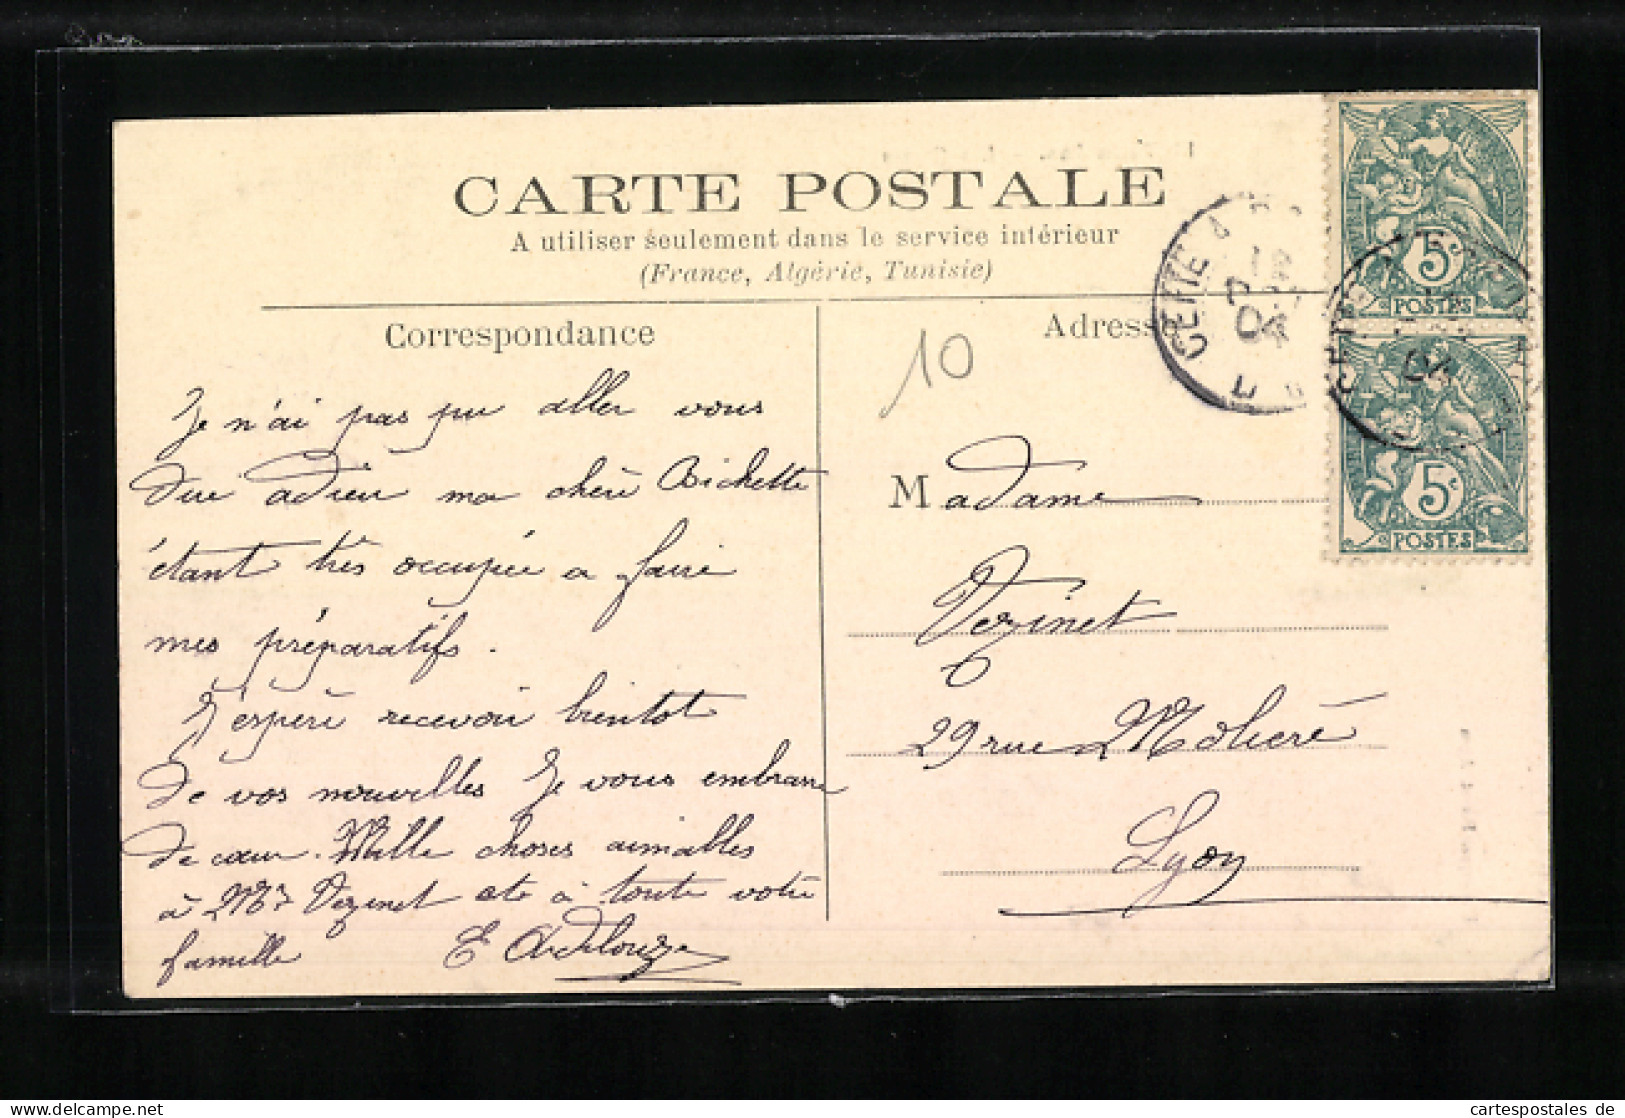 CARTE POSTALE
A utiliser seulement dans le service intérieur
(France, Algérie, Tunisie)
Correspondance
Je n'ai pas pu aller vous
dire adieu ma chère Bichette
étant très occupée a faire
mes préparatifs.
J'espère recevoir bientot
de vos nouvelles Je vous embrasse
de cœur. Mille choses aimables
à Mr Vezinet et à toute votre
famille E
Adresse
10
Madame
Vezinet
29 rue Molière
Lyon
CETTE
04
5c
POSTES
CETTE
04
5c
POSTES
www.cartespostales.de
cartespostales de